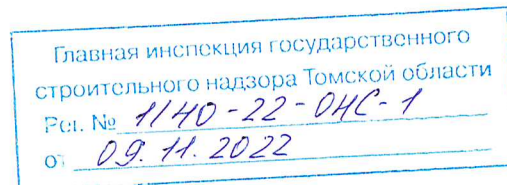 Главная инспекция государственного
строительного надзора Томской области
Рег. № 1140-22-ОНС-1
от 09.11.2022